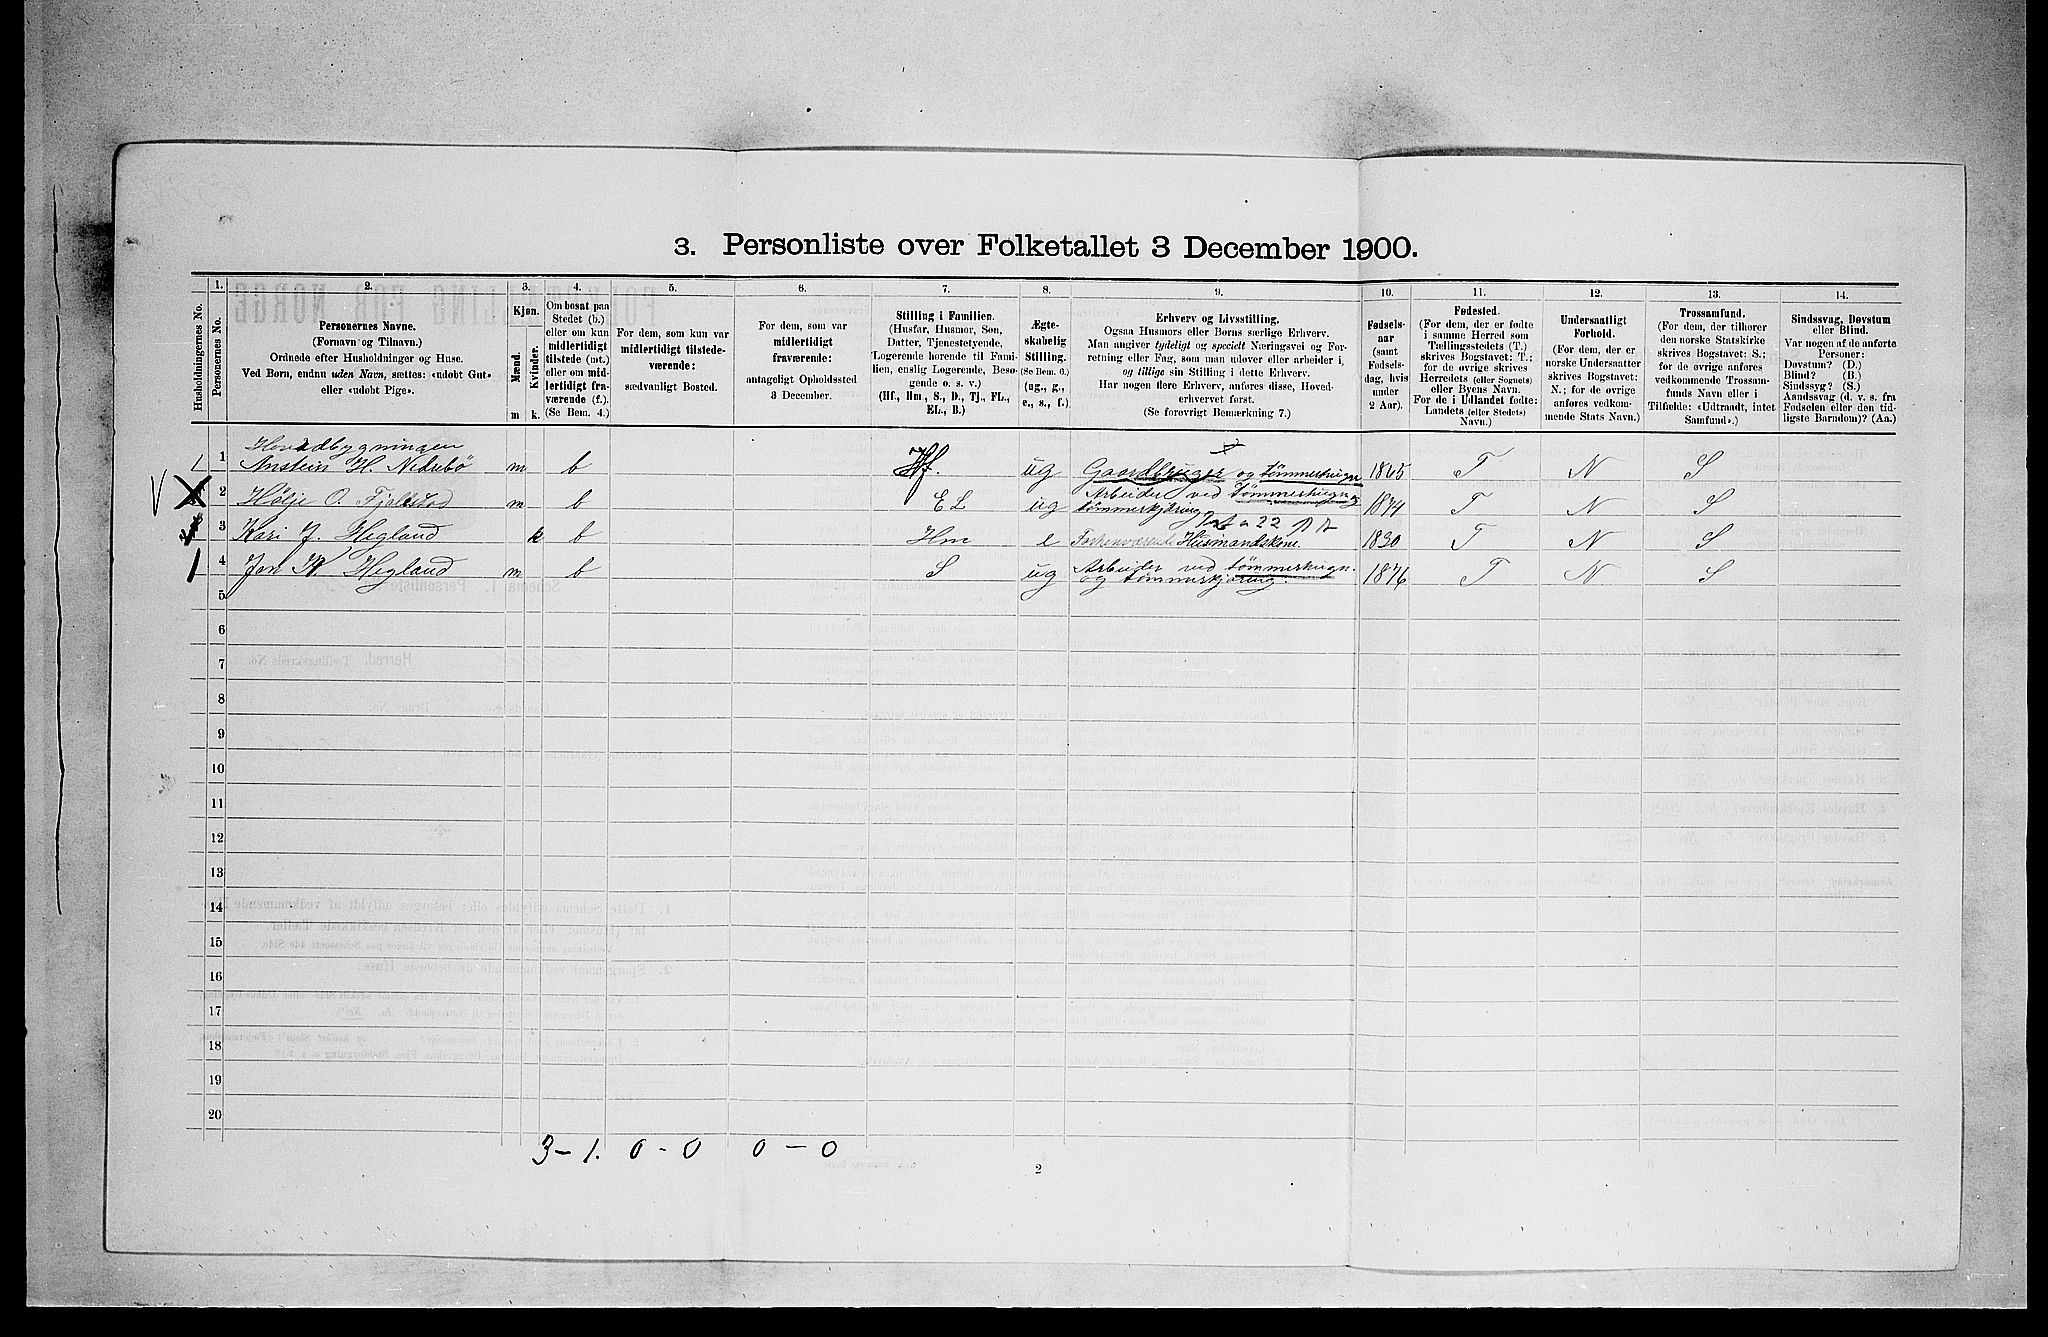 3. Personliste over Folketallet 3 December 1900.
1. 2. 3. 4. 5. 6. 7. 8. 9. 10. 11. 12. 13. 14.
Husholdningernes No.
Personernes No.
Personernes Navne.
(Fornavn og Tilnavn.)
Ordnede efter Husholdninger og Huse.
Ved Børn, endnu uden Navn, sættes: «udøbt Gut»
eller «udøbt Pige».
Kjøn.
Mænd.
Kvinder.
m k.
Om bosat paa
Stedet (b.)
eller om kun
midlertidigt
tilstede (mt.)
eller om mid-
lertidigt fra-
værende (f.)
(Se Bem. 4.)
For dem, som kun var
midlertidigt tilstede-
værende:
sædvanligt Bosted.
For dem, som var
midlertidigt
fraværende:
antageligt Opholdssted
3 December.
Stilling i Familien.
(Husfar, Husmor, Søn,
Datter, Tjenestetyende,
Logerende hørende til Fami-
lien, enslig Logerende, Besø-
gende o. s. v.)
(Hf., Hm., S., D., Tj., FL.,
EL., B.)
Ægte-
skabelig
Stilling.
(Se Bem. 6.)
(ug., g.,
e., s., f.)
Erhverv og Livsstilling.
Ogsaa Husmors eller Børns særlige Erhverv.
Man angiver tydeligt og specielt Næringsvei og For-
retning eller Fag, som man udøver eller arbeider i,
og tillige sin Stilling i dette Erhverv.
Har nogen flere Erhverv, anføres disse, Hoved-
erhvervet først.
(Se forøvrigt Bemærkning 7.)
Fødsels-
aar
(samt
Fødsels-
dag, hvis
under
2 Aar).
Fødested.
(For dem, der er fødte
i samme Herred som
Tællingsstedets (T.)
skrives Bogstavet: T.;
for de øvrige skrives
Herredets (eller Sognets)
eller Byens Navn.
For de i Udlandet fødte:
Landets (eller Stedets)
Navn.)
Undersaatligt
Forhold.
(For dem, der er
norske Undersaatter
skrives Bogstavet:
N.; for de øvrige
anføres vedkom-
mende Stats Navn.)
Trossamfund.
(For dem, der tilhører
den norske Statskirke
skrives Bogstavet: S.;
for de øvrige anføres
vedkommende Trossam-
funds Navn eller i
Tilfælde: «Udtraadt, intet
Samfund».)
Sindssvag, Døvstum
eller Blind.
Var nogen af de anførte
Personer:
Døvstum? (D.)
Blind? (B.)
Sindssyg? (S.)
Aandssvag (d. v. s. fra
Fødselen eller den tid-
ligste Barndom)? (Aa.)
Hovedbygningen
1 1 Anstein H. Nedrebø m b Hf. ug Gaardbruger og tømmerhugn 1865 T N S
V 2 Hølje O. Fjellstad m b EL ug Arbeider ved tømmerhugn og
tømmerkjøring 1874 T N S
3 Kari J. Hegland k b Hm e Forhenværende Husmandskone. 1830 T N S
1 4 Jon K. Hegland m b S ug Arbeider ved tømmerhugn.
og tømmerkjøring. 1876 T N S
5
6
7
8
9
10
11
12
13
14
15
16
17
18
19
20
3 – 1. 0 - 0 0 – 0
2